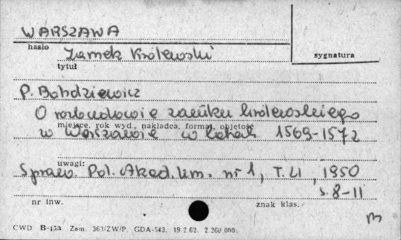 WARSZAWA
hasło
Zamek Królewski
sygnatura
tytuł
P. Bohdziewicz
O rozbudowie zamku królewskiego
miejsce, rok wyd., nakładca, format, objętość
w Warszawie w latach 1569-1572
uwagi:
Spraw. Pol. Akad. Um. nr 1, T. LI, 1950
s. 8-11
nr inw.
znak klas.
CWD B-13a Zam. 363/ZW/P. GDA-543. 19.2.62. 2.200.000.